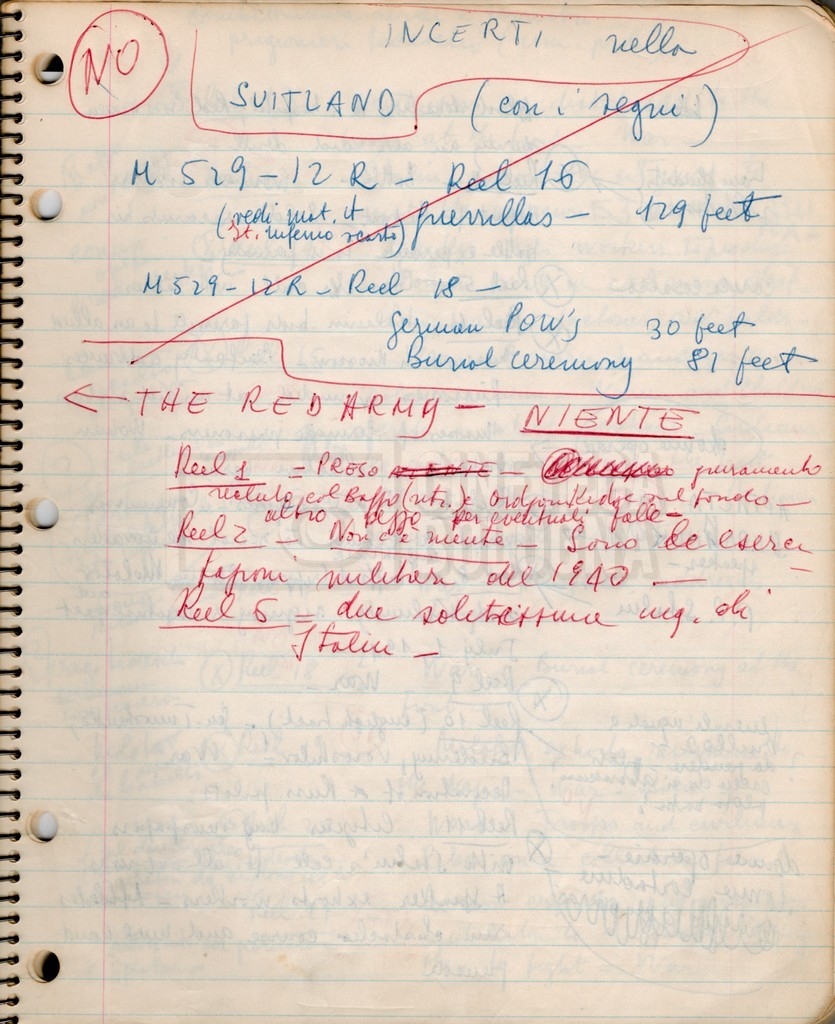 NO
INCERTI nella
SUITLAND (con i segni)
M 529-12 R - Reel 16
(vedi mat. it guerrillas - 129 feet
st. inferno scarto)
M 529-12 R - Reel 18 -
German POW's 30 feet
Burial ceremony 81 feet
← THE RED ARMY - NIENTE
Reel 1 = PRESO NIENTE - giuramento
recluta col Baffo
altro pezzo per eventuali
Reel 2 - Non c'è niente - Sono le eserci
taponi militari del 1940 -
Reel 5 = due solitissime inq. di
Stalin -